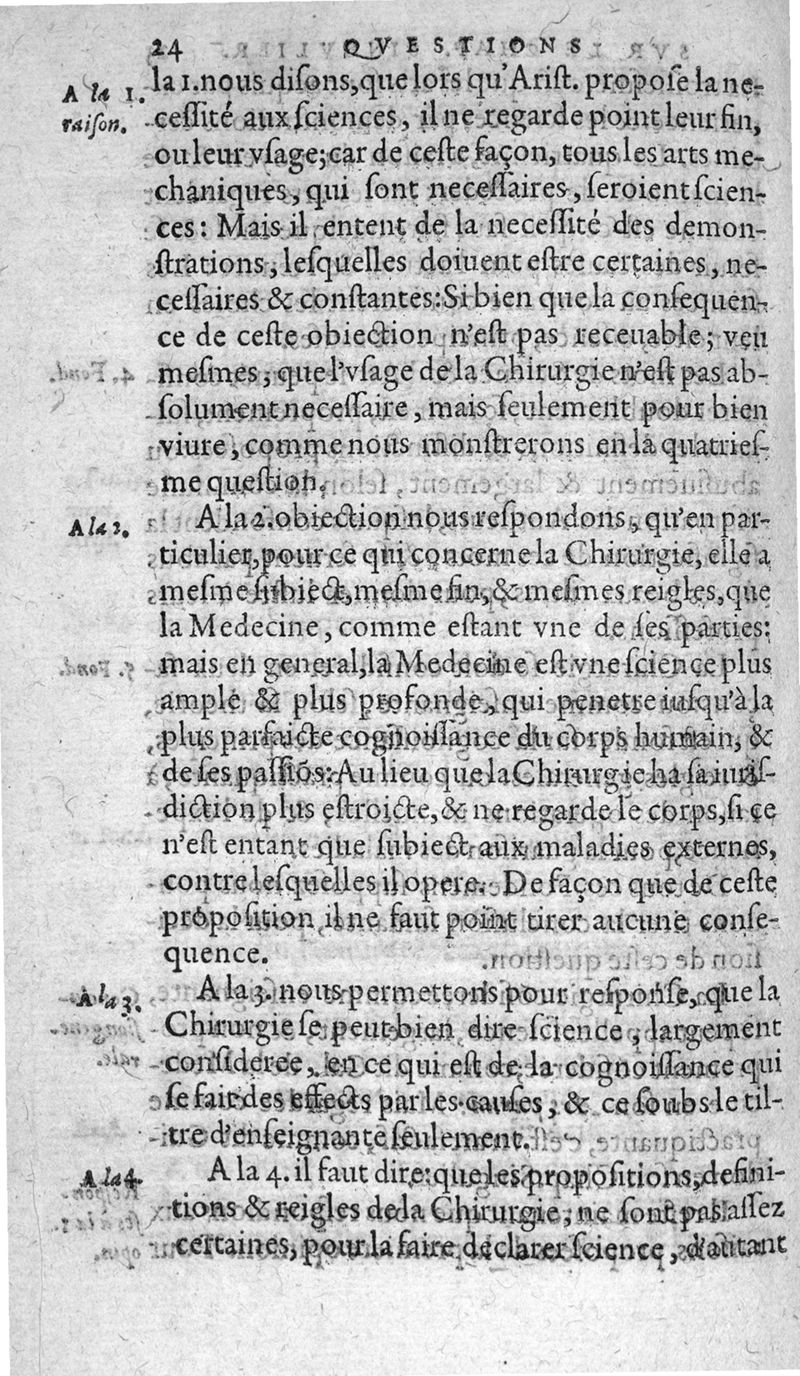 24 QVESTIONS
A la 1. raison.
la 1. nous disons, que lors qu'Arist. propose la ne-
cessité aux sciences, il ne regarde point leur fin,
ou leur vsage; car de ceste façon, tous les arts me-
chaniques, qui sont necessaires, seroient scien-
ces: Mais il entent de la necessité des demon-
strations, lesquelles doiuent estre certaines, ne-
cessaires & constantes: Si bien que la consequen-
ce de ceste obiection n'est pas receuable; veu
mesmes, que l'vsage de la Chirurgie n'est pas ab-
solument necessaire, mais seulement pour bien
viure, comme nous monstrerons en la quatries-
me question.
A la 2.
A la 2. obiection nous respondons, qu'en par-
ticulier, pour ce qui concerne la Chirurgie, elle a
mesme subiect, mesme fin, & mesmes reigles, que
la Medecine, comme estant vne de ses parties:
mais en general, la Medecine est vne science plus
ample & plus profonde, qui penetre iusqu'à la
plus parfaicte cognoissance du corps humain, &
de ses passiõs: Au lieu que la Chirurgie ha sa iuris-
diction plus estroicte, & ne regarde le corps, si ce
n'est entant que subiect aux maladies externes,
contre lesquelles il opere. De façon que de ceste
proposition il ne faut point tirer aucune conse-
quence.
A la 3.
A la 3. nous permettons pour response, que la
Chirurgie se peut bien dire science, largement
consideree, en ce qui est de la cognoissance qui
se fait des effects par les causes, & ce soubs le til-
tre d'enseignante seulement.
A la 4.
A la 4. il faut dire: que les propositions, defini-
tions & reigles de la Chirurgie, ne sont pas assez
certaines, pour la faire declarer science, d'autant